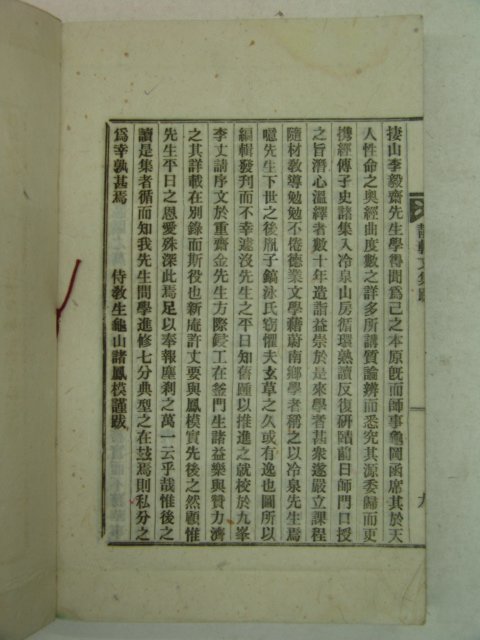 捿山李毅齋先生學得聞爲己之本原旣而師事龜岡函席其於天
人性命之奧經曲度數之詳多所講質論辨而悉究其源委歸而更
携經傳子史諸集入冷泉山房循環熟讀反復研賾前日師門口授
之旨潛心溫繹者數十年造詣益崇於是來學者甚衆遂嚴立課程
隨材敎導勉勉不倦德業文學藉蔚南鄕學者稱之以冷泉先生焉
噫先生下世之後胤子鎬泳氏竊懼夫玄草之久或有逸也圖所以
編輯發刊而不幸遽沒先生之平日知舊踵以推進之就校於九峯
李丈請序文於重齋金先生方際 工在釜門生諸益樂與贊力濟
之其詳載在別錄而斯役也新庵許丈要與鳳模實先後之然顧惟
先生平日之恩愛殊深此焉足以奉報塵刹之萬一云乎哉惟後之
讀是集者循而知我先生問學進修七分典型之在玆焉則私分之
爲幸孰甚焉 侍敎生龜山諸鳳模謹跋